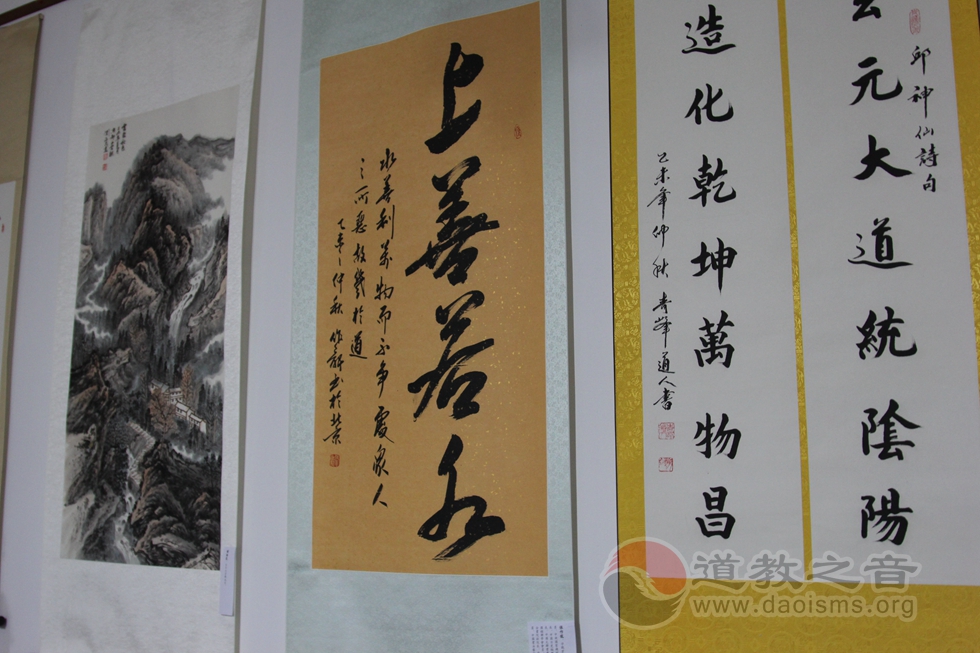 邱神仙詩句
元大道統陰陽
造化乾坤萬物昌
乙未年仲秋 峰道人書
上善若水
水善利萬物而不争處衆人
之所惡故幾於道
仲秋 书於北京
道教之音
www.daoisms.org